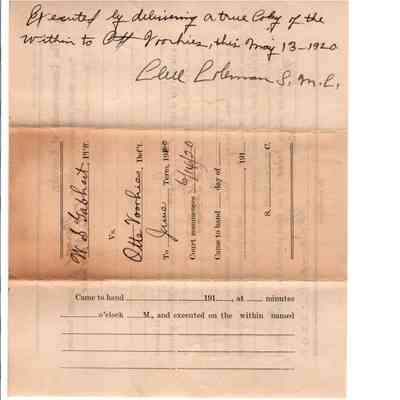 Executed by delivering a true Coby of the
within to Ott Voorhies, this May 13-1920
Coleman S, M.C,
W S Gabhart, Pl'ff.
Vs.
Otto Voorhies, Def't.
To June Term, 19
Court commences 6/14/20
Came to hand day of
, 191
S. C.
Came to hand 191 , at minutes
o'clock M., and executed on the within named